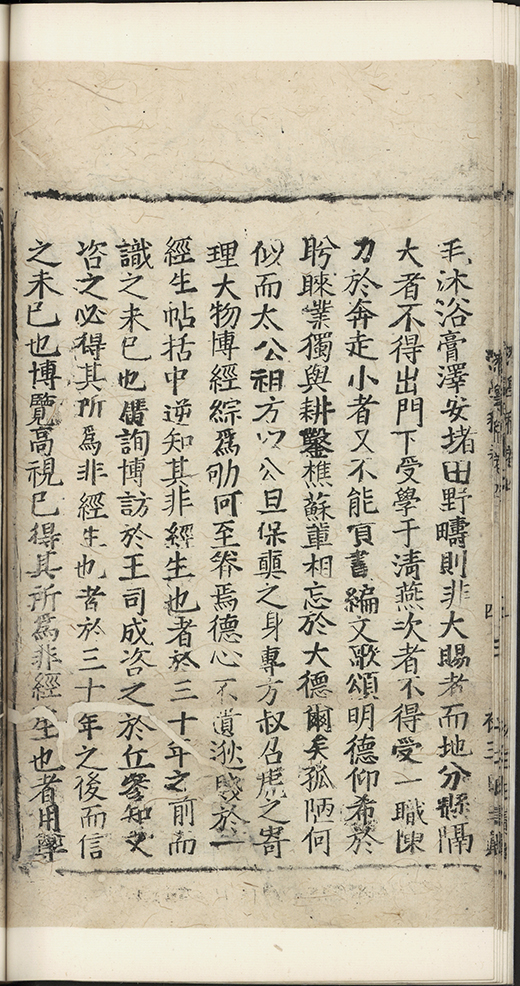 毛沐浴膏澤安堵田野疇則非大賜者而地分縣隔
大者不得出門下受學于清燕次者不得受一職悚
力於奔走小者又不能寘書編文歌頌明德仰希於
盻睞業獨與耕鑿樵蘇輩相忘於大德爾矣孤陋何
似而太公祖方以公旦保奭之身專方叔召虎之寄
理大物博經綜爲劬何至眷焉德心不遺逖賤於一
經生帖括中逆知其非經生也者於三十年之前而
識之未已也博訪於王司成咨之於丘參知又
咨之必得其所爲非經生也者於三十年之後而信
之未已也博覽高視已得其所爲非經生也者用